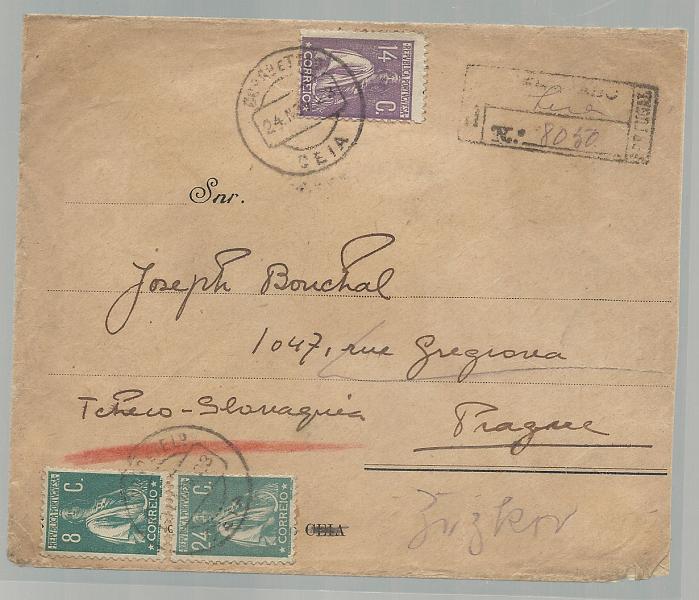 14 C.
REPUBLICA PORTUGUESA
CORREIO
24
CEIA
PORTUGAL
N.º 8050
Snr.
Joseph Bouchal
1047, rue Gregrova
Tchéco-Slovaquia
Prague
8 C.
REPUBLICA PORTUGUESA
CORREIO
24 C.
REPUBLICA PORTUGUESA
CORREIO
CEIA
Žižkov